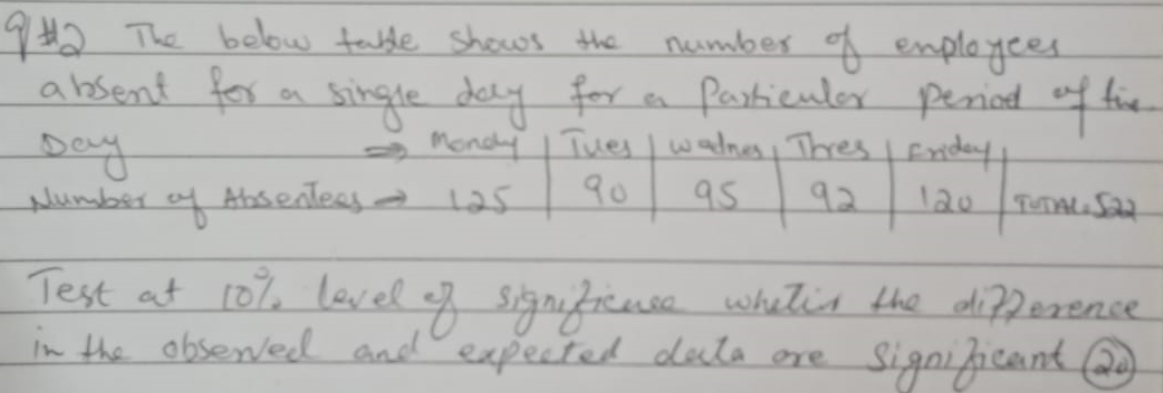 Q#2 The below table shows the number of employees
absent for a single day for a Particular period of time
Day ⇒ Monday | Tues | wadnes | Thres | Friday |
Number of Absentees → 125 | 90 | 95 | 92 | 120 | TOTAL=522
Test at 10% level of significance whether the difference
in the observed and expected data are significant (20)